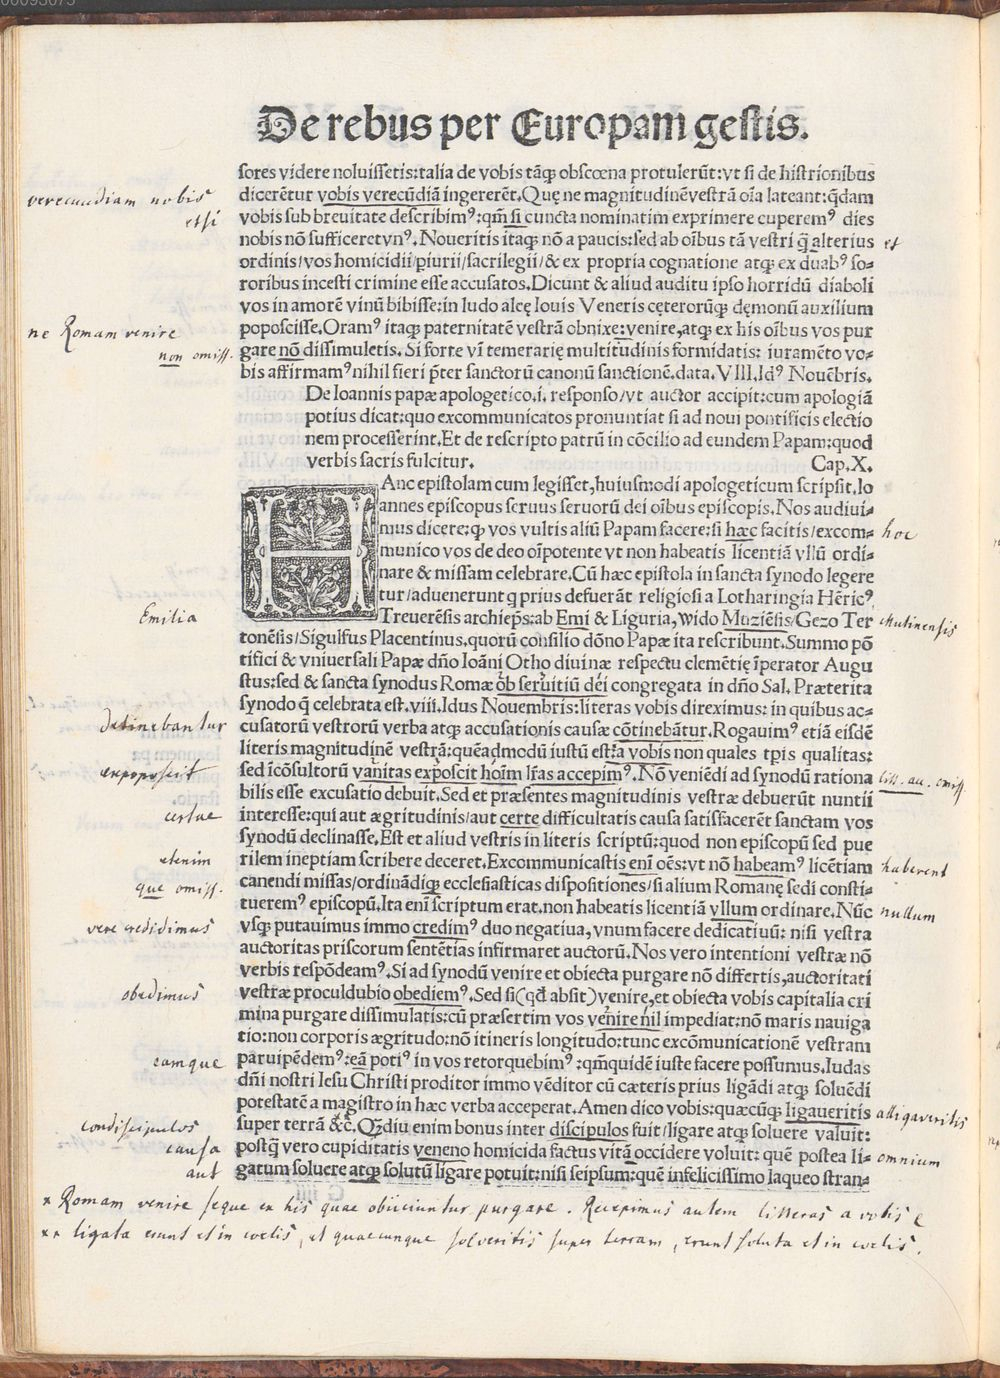 00093075
De rebus per Europam gestis.
sores videre noluissetis:talia de vobis tāꝗ obscœna protulerūt:vt si de histrionibus
verecundiam nobis
dicerētur vobis verecūdiā ingererēt.Quę ne magnitudinēvestrā oīa lateant:q̄dam
etsi
vobis sub breuitate describimꝰ:qm̄ si cuncta nominatim exprimere cuperemꝰ dies
nobis nō sufficeretvnꝰ. Noueritis itaqꝫ nō a paucis:sed ab oībus tā vestri q̄ alterius
et
ordinis/vos homicidii/piurii/sacrilegii/& ex propria cognatione atqꝫ ex duabꝰ so⸗
roribus incesti crimine esse accusatos.Dicunt & aliud auditu ipso horridū diaboli
vos in amorē vinū bibisse:in ludo alcę Iouis Veneris cęterorūqꝫ dęmonū auxilium
ne Romam venire
poposcisse.Oramꝰ itaqꝫ paternitatē vestrā obnixe:venire,atqꝫ ex his oībus vos pur
non omiss.
gare nō dissimuletis. Si forte vī temerarię multitudinis formidatis: iuramēto vo⸗
bis affirmamꝰ nihil fieri p̄ter sanctorū canonū sanctionē.data. VIII.Idꝰ Nouēbris.
De Ioannis papæ apologetico.i. responso/vt auctor accipit:cum apologiā
potius dicat:quo excommunicatos pronuntiat si ad noui pontificis electio
nem processerint.Et de rescripto patrū in cōcilio ad eundem Papam:quod
verbis sacris fulcitur. Cap.X.
HAnc epistolam cum legisset,huiusmodi apologeticum scripsit.Io
annes episcopus seruus seruorū dei oībus episcopis. Nos audiui⸗
mus dicere:ꝙ vos vultis aliū Papam facere:si hæc facitis/excom⸗
hoc
munico vos de deo oīpotente vt non habeatis licentiā vllū ordi⸗
nare & missam celebrare.Cū hæc epistola in sancta synodo legere
tur/aduenerunt q prius defuerāt religiosi a Lotharingia Hēricꝰ,
Emilia
Treuerēsis archiep̄s:ab Emi & Liguria, wido Muziēsis/Gezo Ter
Mutinensis
tonēsis/Sigulfus Placentinus.quorū consilio dōno Papæ ita rescribunt.Summo pō
tifici & vniuersali Papæ dn̄o Ioāni Otho diuinæ respectu clemētię īperator Augu
stus:sed & sancta synodus Romæ ob seruitiū dei congregata in dn̄o Sal. Præterita
synodo q̄ celebrata est.viii.Idus Nouembris:literas vobis direximus: in quibus ac⸗
detinebantur
cusatorū vestrorū verba atqꝫ accusationis causæ cōtinebātur.Rogauimꝰ etiā eisdē
literis magnitudinē vestrā:quēadmodū iustū est:ſa vobis non quales tpis qualitas:
expoposcit
sed īcōsultorū vanitas exposcit hoim lras accepimꝰ. Nō veniēdi ad synodū rationa
litt. au. omiss.
bilis esse excusatio debuit.Sed et præsentes magnitudinis vestræ debuerūt nuntii
certae
interesse:qui aut ægritudinis/aut certe difficultatis causa satisfacerēt sanctam vos
synodū declinasse.Est et aliud vestris in literis scriptū:quod non episcopū sed pue
etenim
rilem ineptiam scribere deceret.Excommunicastis enī oēs:vt nō habeamꝰ licētiam
haberent
que omiss.
canendi missas/ordinādiqꝫ ecclesiasticas dispositiones/si alium Romanę sedi consti⸗
tueremꝰ episcopū.Ita enī scriptum erat.non habeatis licentiā vllum ordinare.Nūc
nullum
vere credidimus
vsqꝫ putauimus immo credimꝰ duo negatiua,vnum facere dedicatiuū: nisi vestra
auctoritas priscorum sentētias infirmaret auctorū. Nos vero intentioni vestræ nō
verbis respōdeamꝰ.Si ad synodū venire et obiecta purgare nō differtis,auctoritati
obedimus
vestræ proculdubio obediemꝰ. Sed si(qđ absit)venire,et obiecta vobis capitalia cri
mina purgare dissimulatis:cū præsertim vos venire nil impediat:nō maris nauiga
tio:non corporis ægritudo:nō itineris longitudo:tunc excōmunicationē vestram
eamque
paruipēdemꝰ:eā potiꝰ in vos retorquebimꝰ :qm̄quidē iuste facere possumus.Iudas
dn̄i nostri Iesu Christi proditor immo vēditor cū cæteris prius ligādi atqꝫ soluēdi
potestatē a magistro in hæc verba acceperat.Amen dico vobis:quæcūqꝫ ligaueritis
alligaveritis
condiscipulos
super terrā &c̄. Qꝫdiu enim bonus inter discipulos fuit/ligare atqꝫ soluere valuit:
causa
postq̄ vero cupiditatis veneno homicida factus vitā occidere voluit: quē postea li⸗
omnium
aut
gatum soluere atqꝫ solutū ligare potuit:nisi seipsum:quē infelicissimo laqueo stran⸗
x Romam venire seque ex his quae obiiciuntur purgare. Recepimus autem litteras a vobis
xx ligata erunt et in coelis, et quaecunque solveritis super terram, erunt soluta et in coelis.